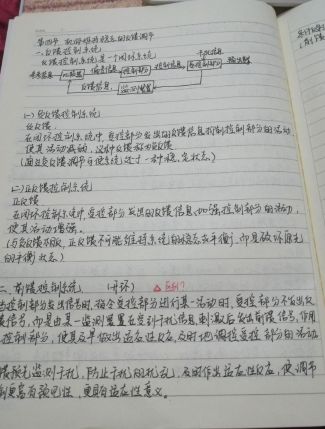 第四节 机体维持稳态的反馈调节
一、反馈控制系统
反馈控制系统是一个闭环系统
干扰信息
参考信息 比较器 偏差信息 控制部分 控制信息 受控部分 输出变量
反馈信息 监测装置
(一)负反馈控制系统
负反馈
在闭环控制系统中,受控部分发出的反馈信息抑制控制部分的活动,
使其活动减弱,这种反馈称为负反馈
(二)正反馈控制系统
正反馈
在闭环控制系统中,受控部分发出的反馈信息,加强控制部分的活动,
使其活动增强。
(与负反馈相反,正反馈不可能维持系统的稳态或平衡,而是破坏原先
的平衡状态)
二、前馈控制系统 (开环) △
控制部分发出信号时,指令受控部分进行某一活动时,受控部分不发出反
馈信号,而是由某一监测装置在受到干扰信息刺激后发出前馈信号,作用
控制部分,使其及早做出适应性反应,及时地调控受控部分的活动
馈预先监测干扰,防止干扰的扰乱,及时作出适应性反应,使调节
制更富有预见性,更具有适应性意义。